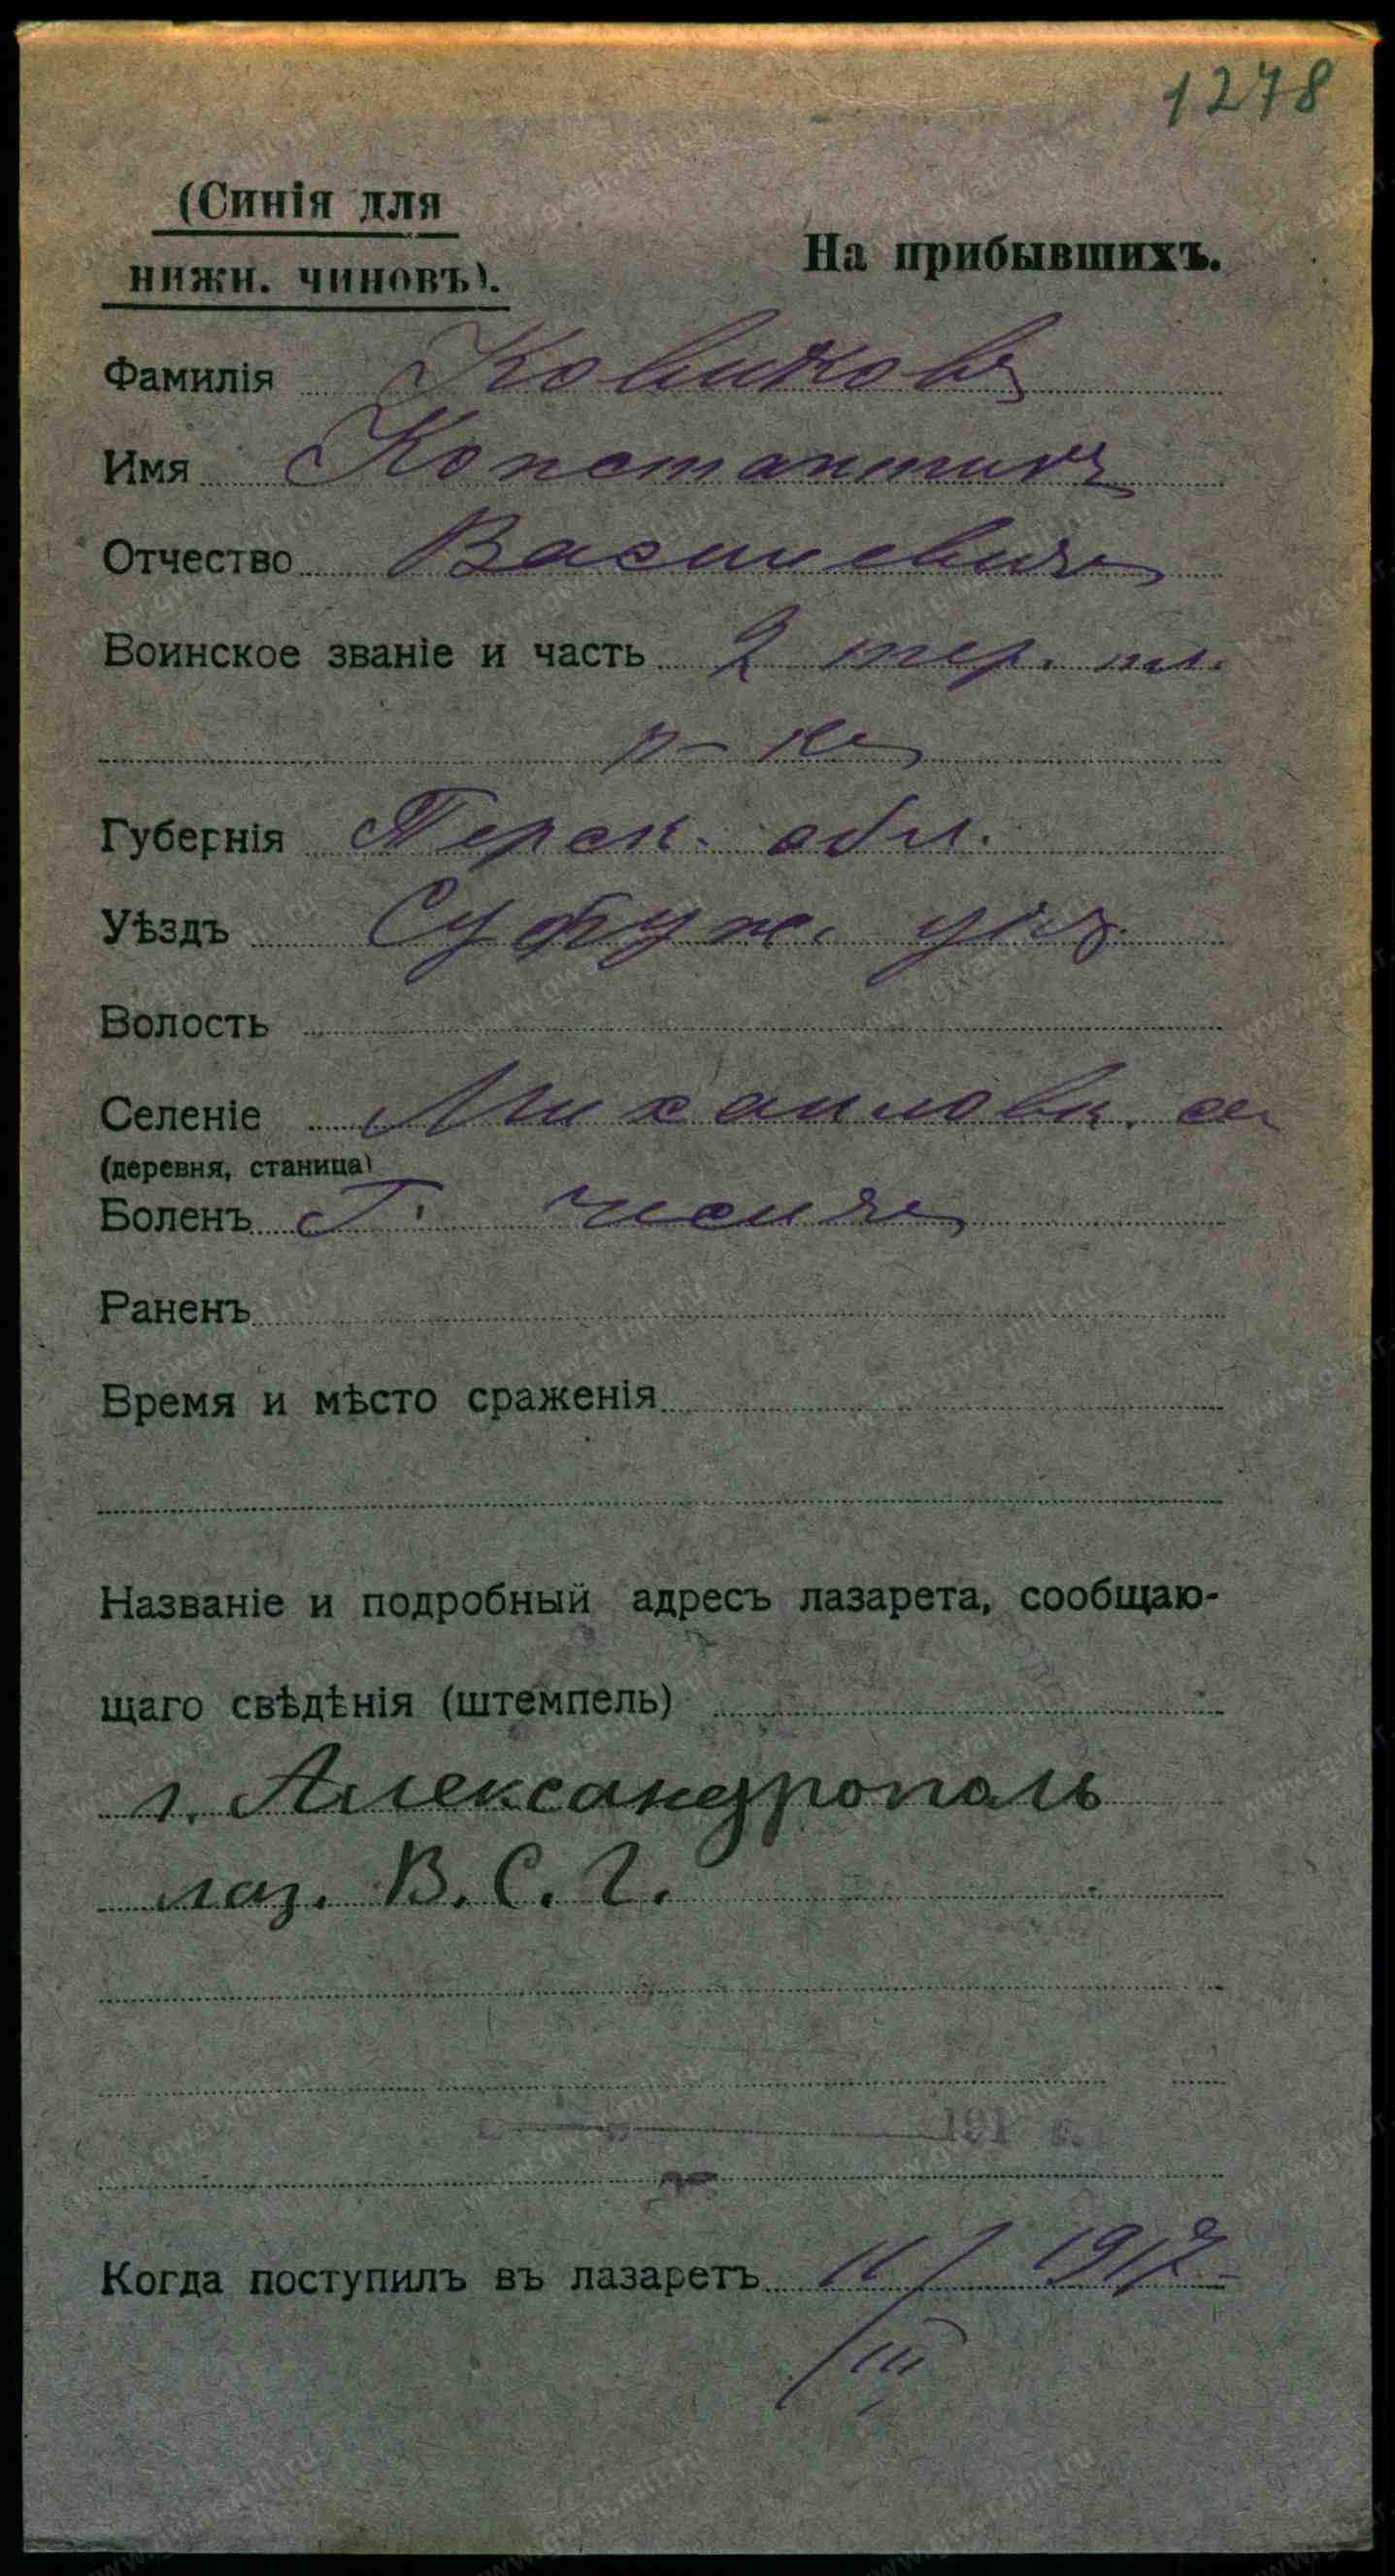 1278
(Синія для
нижн. чиновъ).
На прибывшихъ.
Фамилія Ковичковъ
Имя Константинъ
Отчество Василевичъ
Воинское званіе и часть 2 тер. пл.
р-къ
Губернія Терск. обл.
Уѣздъ уѣз.
Волость
Селеніе Михаиловк. ст
(деревня, станица)
Боленъ
Раненъ
Время и мѣсто сраженія
Названіе и подробный адресъ лазарета, сообщаю-
щаго свѣдѣнія (штемпель)
г. Александрополь
лаз. В. С. Г.
191 г.
Когда поступилъ въ лазаретъ 11/III 1917